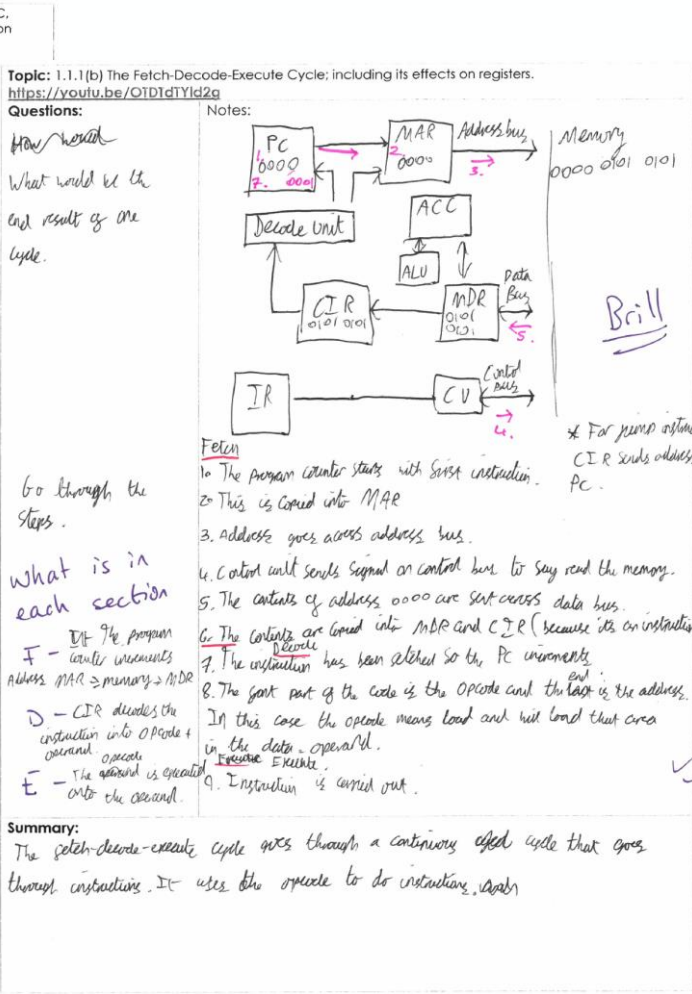 C.
on
Topic: 1.1.1(b) The Fetch-Decode-Execute Cycle; including its effects on registers.
https://youtu.be/OTDTdTYld2g
Questions:
How would
What would be the
end result of one
cycle.
Go through the
steps.
What is in
each section
F - The program
counter increments
Address MAR → memory → MDR
D - CIR decodes the
instruction into opcode +
operand.
opcode
E - The is executed
onto the operand.
Notes:
PC
1. 0000
7. 0001
MAR
2.
0000
Address bus
3.
Memory
0000 0101 0101
Decode Unit
ACC
ALU
CIR
0101 0101
MDR
0101
0101
Data
Bus
5.
Brill
IR
CU
Control
Bus
4.
* For jump instruc
CIR sends address
PC.
Fetch
1. The program counter starts with first instruction.
2. This is copied into MAR
3. Address goes across address bus.
4. Control unit sends signal on control bus to say read the memory.
5. The contents of address 0000 are sent across data bus.
6. The contents are copied into MDR and CIR (because its an instruction
Decode
7. The instruction has been fetched so the PC increments
8. The first part of the code is the opcode and the end is the address.
In this case the opcode means load and will load that area
in the data - operand.
Execute.
9. Instruction is carried out.
Summary:
The fetch-decode-execute cycle goes through a continuous cycle that goes
through instructions. It uses the opcode to do instructions.